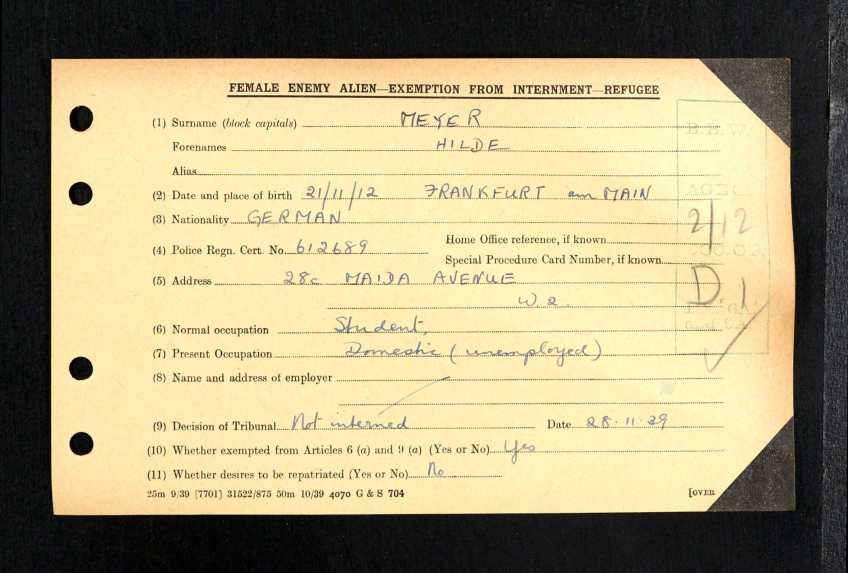 FEMALE ENEMY ALIEN—EXEMPTION FROM INTERNMENT—REFUGEE
(1) Surname (block capitals) MEYER
Forenames HILDE
Alias
(2) Date and place of birth 21/11/12 FRANKFURT am MAIN
(3) Nationality GERMAN
2/12
(4) Police Regn. Cert. No. 612689 Home Office reference, if known
Special Procedure Card Number, if known
(5) Address 28c MAIDA AVENUE
W2.
D.1.
(6) Normal occupation Student.
(7) Present Occupation Domestic (unemployed)
(8) Name and address of employer
(9) Decision of Tribunal Not interned Date 28.11.39
(10) Whether exempted from Articles 6 (a) and 9 (a) (Yes or No) Yes
(11) Whether desires to be repatriated (Yes or No) No
25m 9/39 [7701] 31522/875 50m 10/39 4070 G & S 704 [OVER